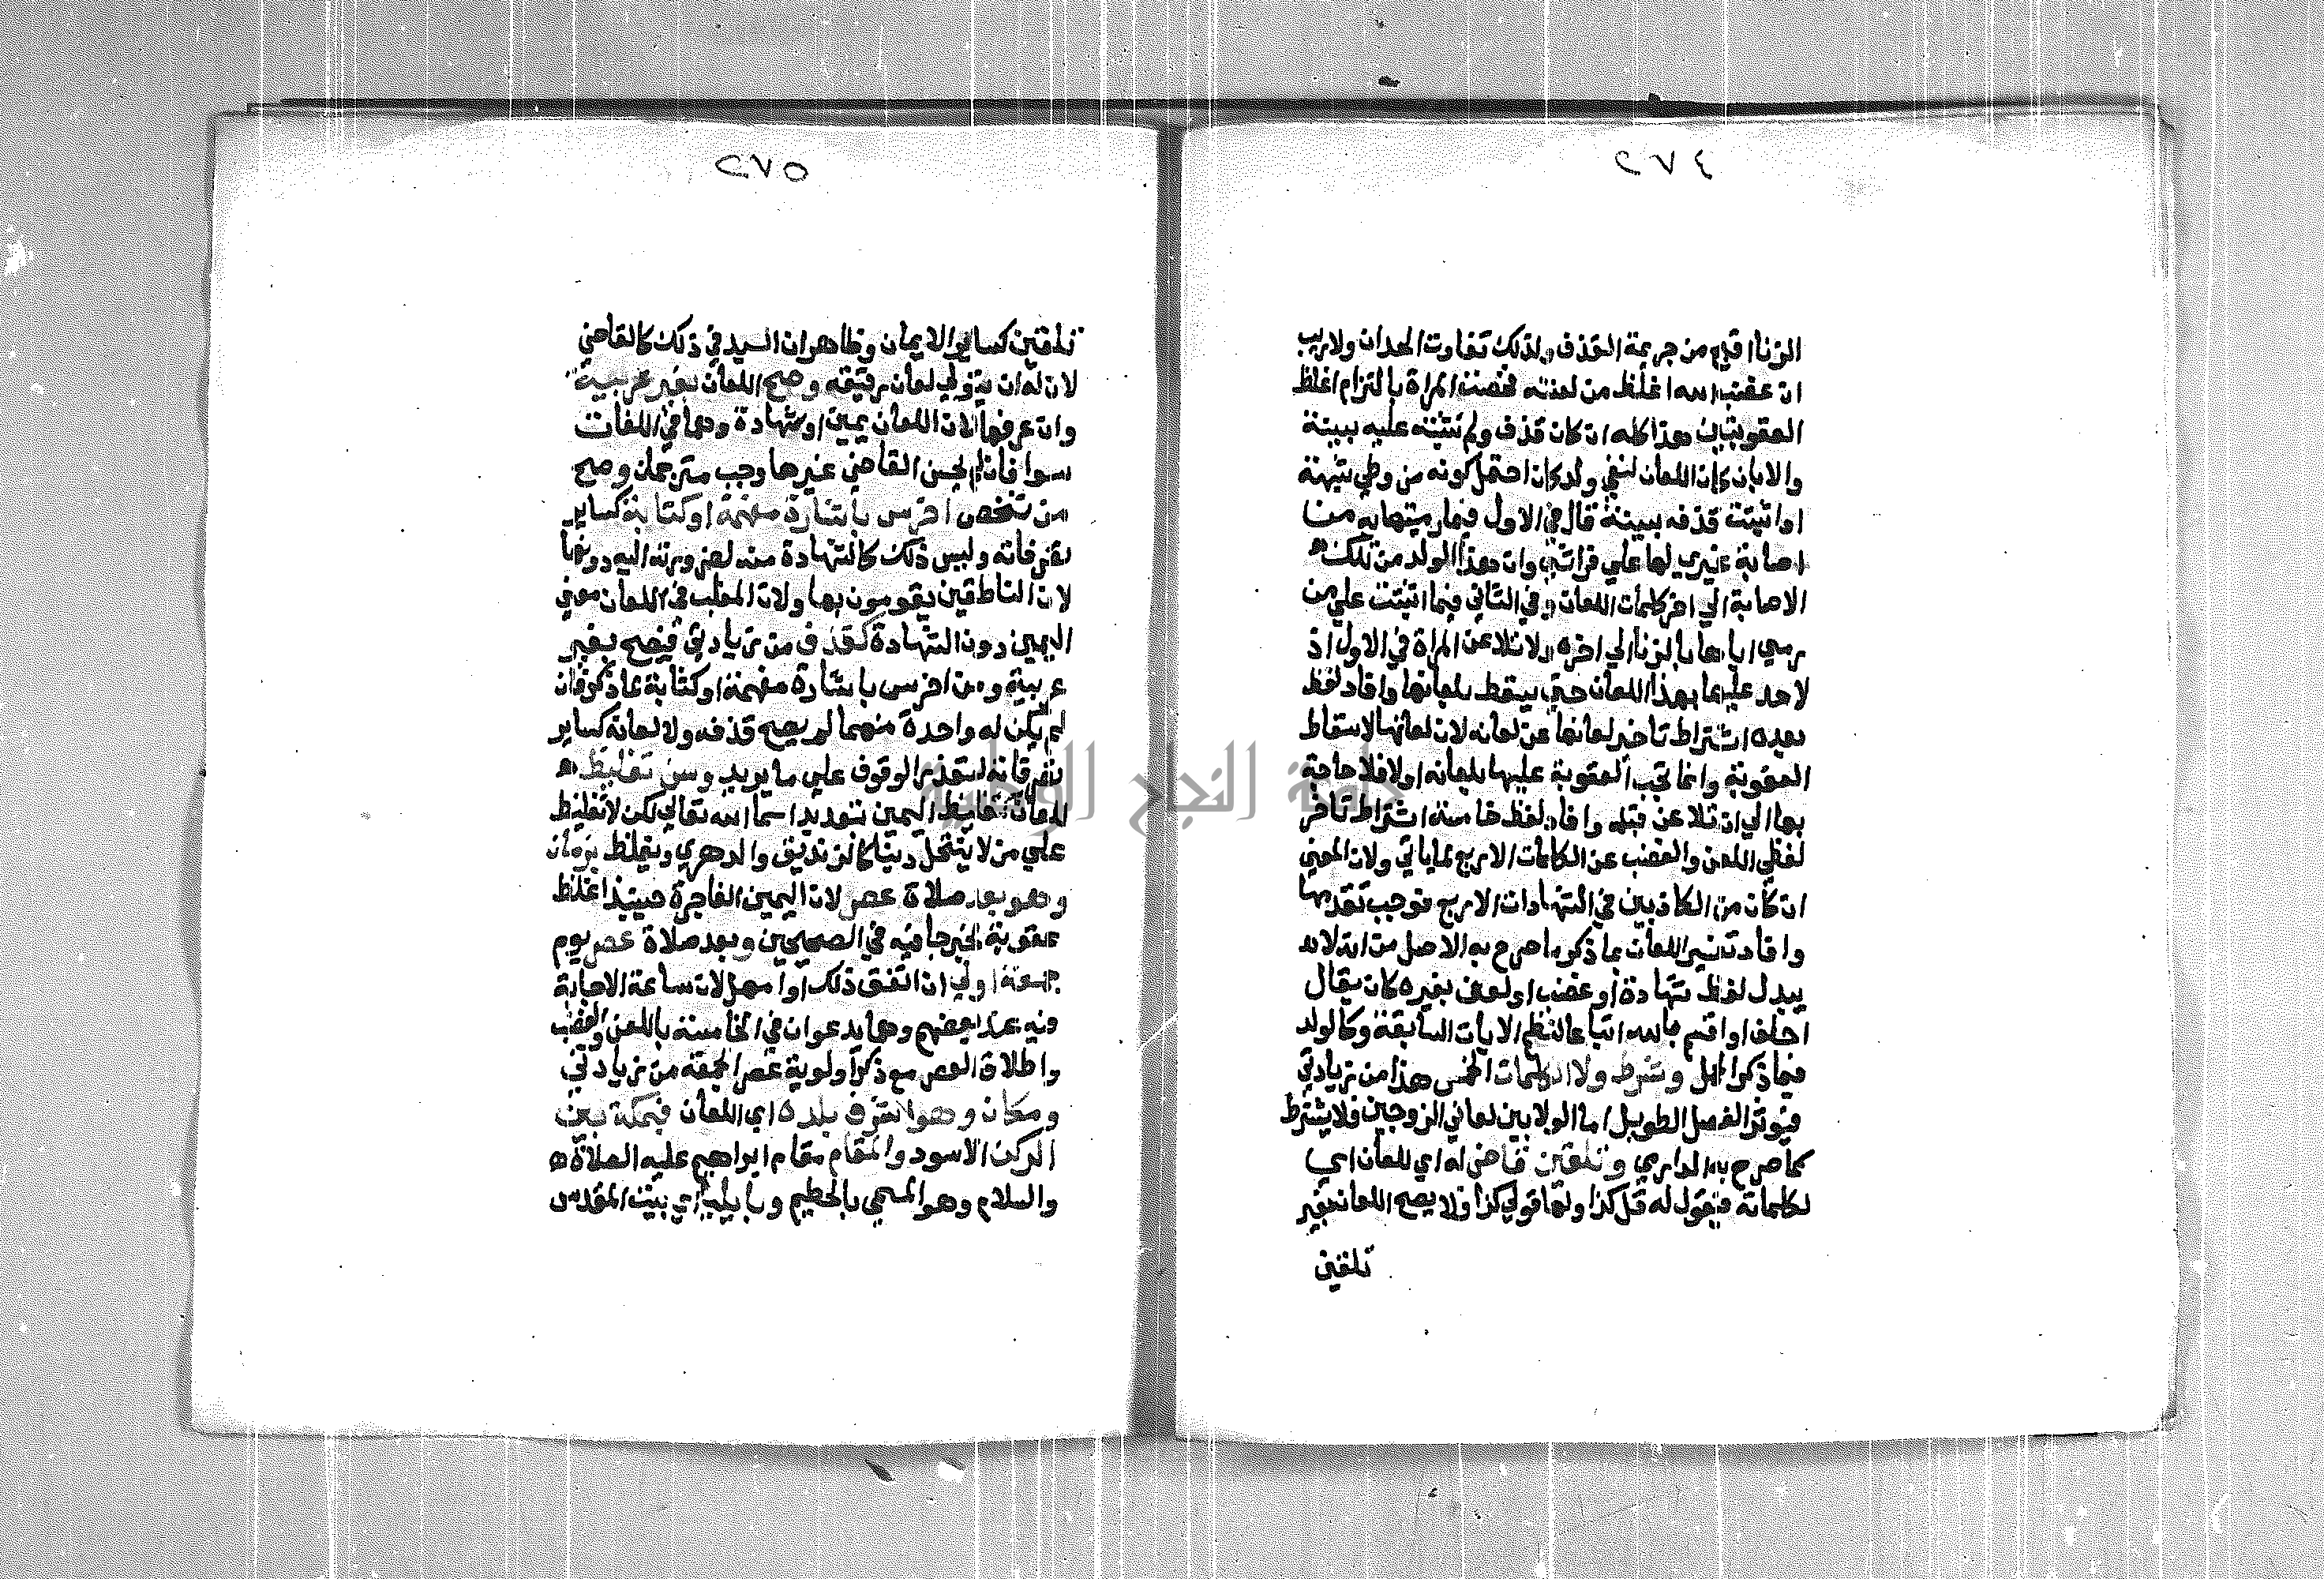 ٢٧٤
الزنا اقبح من جريمة القذف ولذلك تفاوت الحدان ولا ريب
ان عقنب الله اغلظ من لعنته فخصت المراة بالتزام اغلظ
العقوبتين هذا كله ان كان قذف ولم تثبته عليه ببينة
والا بان كان اللعان لنفي ولد كان احتمل كونه من وطي شبهة
او اثبتت قذفه ببينة قال في الاول فيما رميتها به من
اصابة غيري لها علي فراشي وان هذا الولد من تلك
الاصابة الي اخر كلمات اللعان وفي الثاني فيما اثبتت علي من
رمي اياها بالزنا الي اخره ولا تلاعن المراة في الاول اذ
لا حد عليها بهذا اللعان حتي يسقط بلعانها وافاد لفظ
بعده اشتراط تاخير لعانها عن لعانه لان لعانها لاسقاط
العقوبة وانما تجب العقوبة عليها بلعانه اولا فلا حاجة
بها الي ان تلاعن قبله وافاد لفظ خامسة اشتراط تاخر
لفظي اللعن والغضب عن الكلمات الاربع لما ياتي ولان المعني
ان كان من الكاذبين في الشهادات الاربع فوجب تقديمها
وافاد تفسير اللعان بما ذكر ما صرح به الاصل من انه لا يبد
يبدل لفظ شهادة او غضب او لعن بغيره كان يقال
احلف او اقسم بالله اتباعا لنظم الايات السابقة وكالولد
فيما ذكر الحمل وشرط ولا الكلمات الخمس هذا من زيادتي
فيوثر الفصل الطويل اما الولا بين لعاني الزوجين فلا يشترط
كما صرح به الدارمي وتلقين قاض له اي للعان اي
لكلماته فيقول له قل كذا ولها قولي كذا ولا يصح اللعان بغير
تلقين
٢٧٥
تلقين كساير الايمان وظاهر ان السيد في ذلك كالقاضي
لان له ان يتولي لعان رقيقه وصح اللعان بغير عربية
وان عرفها لان اللعان يمين او شهادة وهما في اللغات
سوا فان لم يحسن القاضي غيرها وجب مترجمان وصح
من شخص اخرس باشارة مفهمة او كتابة كساير
تصرفاته وليس ذلك كالشهادة منه لضرورته اليه دونها
لان الناطقين يقومون بها ولان المغلب في اللعان معني
اليمين دون الشهادة كقذف من زيادتي فيصح بغير
عربية ومن اخرس باشارة مفهمة او كتابة بما ذكر فان
لم يكن له واحدة منهما لم يصح قذفه ولا لعانه كساير
تصرفاته لتعذر الوقوف علي ما يريد وسن تغليظ
للعان كتغليظ اليمين بتعديد اسما الله تعالي لكن لا تغليظ
علي من لا ينتحل دينا كالزنديق والدهري ويغلظ بزمان
وهو بعد صلاة عصر لان اليمين الفاجرة حينيذ اغلظ
عقوبة لخبر جا فيه في الصحيحين وبعد صلاة عصر يوم
جمعة اولي ان اتفق ذلك او امهل لان ساعة الاجابة
فيه عند بعضهم وهما يدعوان في الخامسة باللعن والغضب
واطلاق العصر مع ذكر اولوية عصر الجمعة من زيادتي
ومكان وهو اشرف بلده اي اللعان فبمكة بين
الركن الاسود والمقام مقام ابراهيم عليه الصلاة
والسلام وهو المسمي بالحطيم وبايليا اي بيت المقدس
جامعة النجاح الوطنية